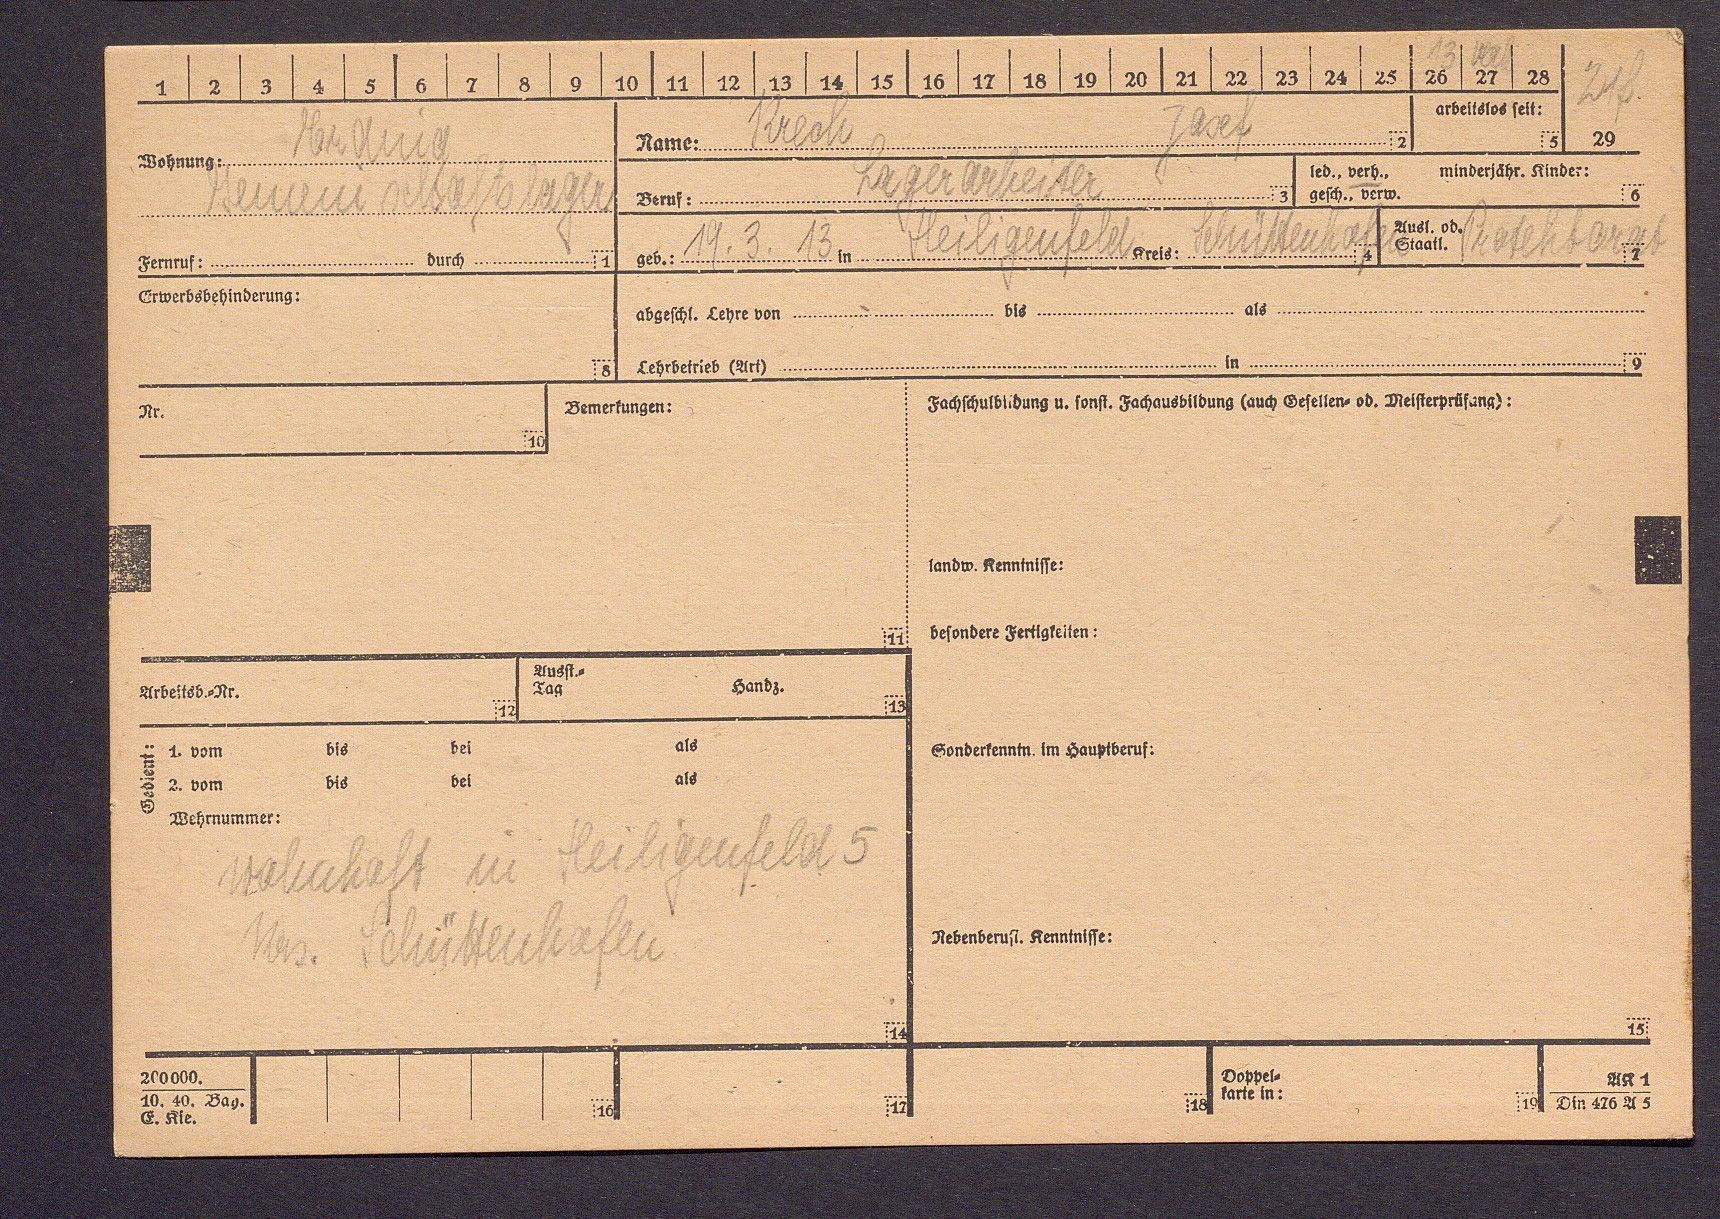 1 2 3 4 5 6 7 8 9 10 11 12 13 14 15 16 17 18 19 20 21 22 23 24 25 26 27 28
Wohnung:
Gemeinschaftslager
Fernruf: durch 1
Name: Krech Josef 2
arbeitslos seit: 5
29
Beruf: Lagerarbeiter 3
led., verh., minderjähr. Kinder:
gesch., verw. 6
geb.: 19. 3. 13 in Heiligenfeld Kreis: Schüttenhofen 4
Ausl. od. Protektorat
Staatl. 7
Erwerbsbehinderung: 8
abgeschl. Lehre von bis als
Lehrbetrieb (Art) in 9
Nr. 10
Bemerkungen: 11
Fachschulbildung u. sonst. Fachausbildung (auch Gesellen- od. Meisterprüfung):
landw. Kenntnisse:
besondere Fertigkeiten:
Arbeitsb.-Nr. 12
Ausst.-
Tag Handz. 13
Gedient:
1. vom bis bei als
2. vom bis bei als
Wehrnummer:
wohnhaft in Heiligenfeld 5
Krs. Schüttenhofen
14
Sonderkenntn. im Hauptberuf:
Nebenberufl. Kenntnisse:
15
200000.
10. 40. Bay.
E. Kie.
16 17 18
Doppel-
karte in: 19
AK 1
Din 476 A 5